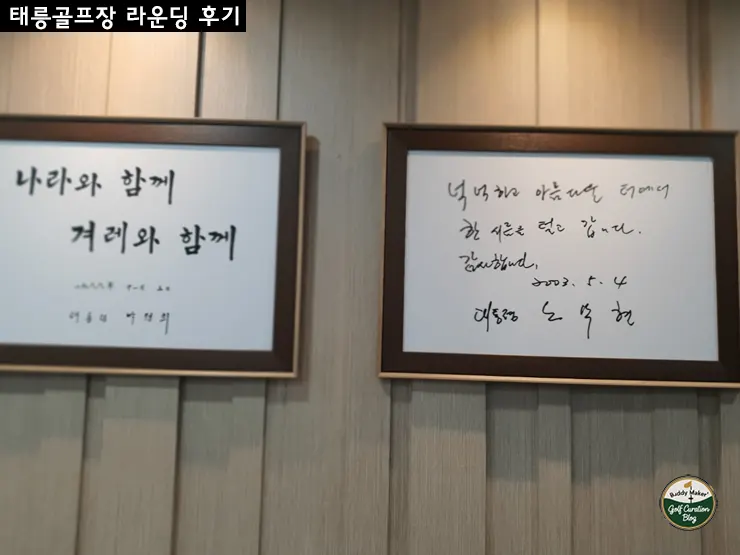 태릉골프장 라운딩 후기
나라와 함께
겨레와 함께
넉넉하고 아름다운 터에서
한 시름을 털고 갑니다.
감사합니다.
2003. 5. 4
대통령 노무현
Buddy Maker
Golf Curation
Blog